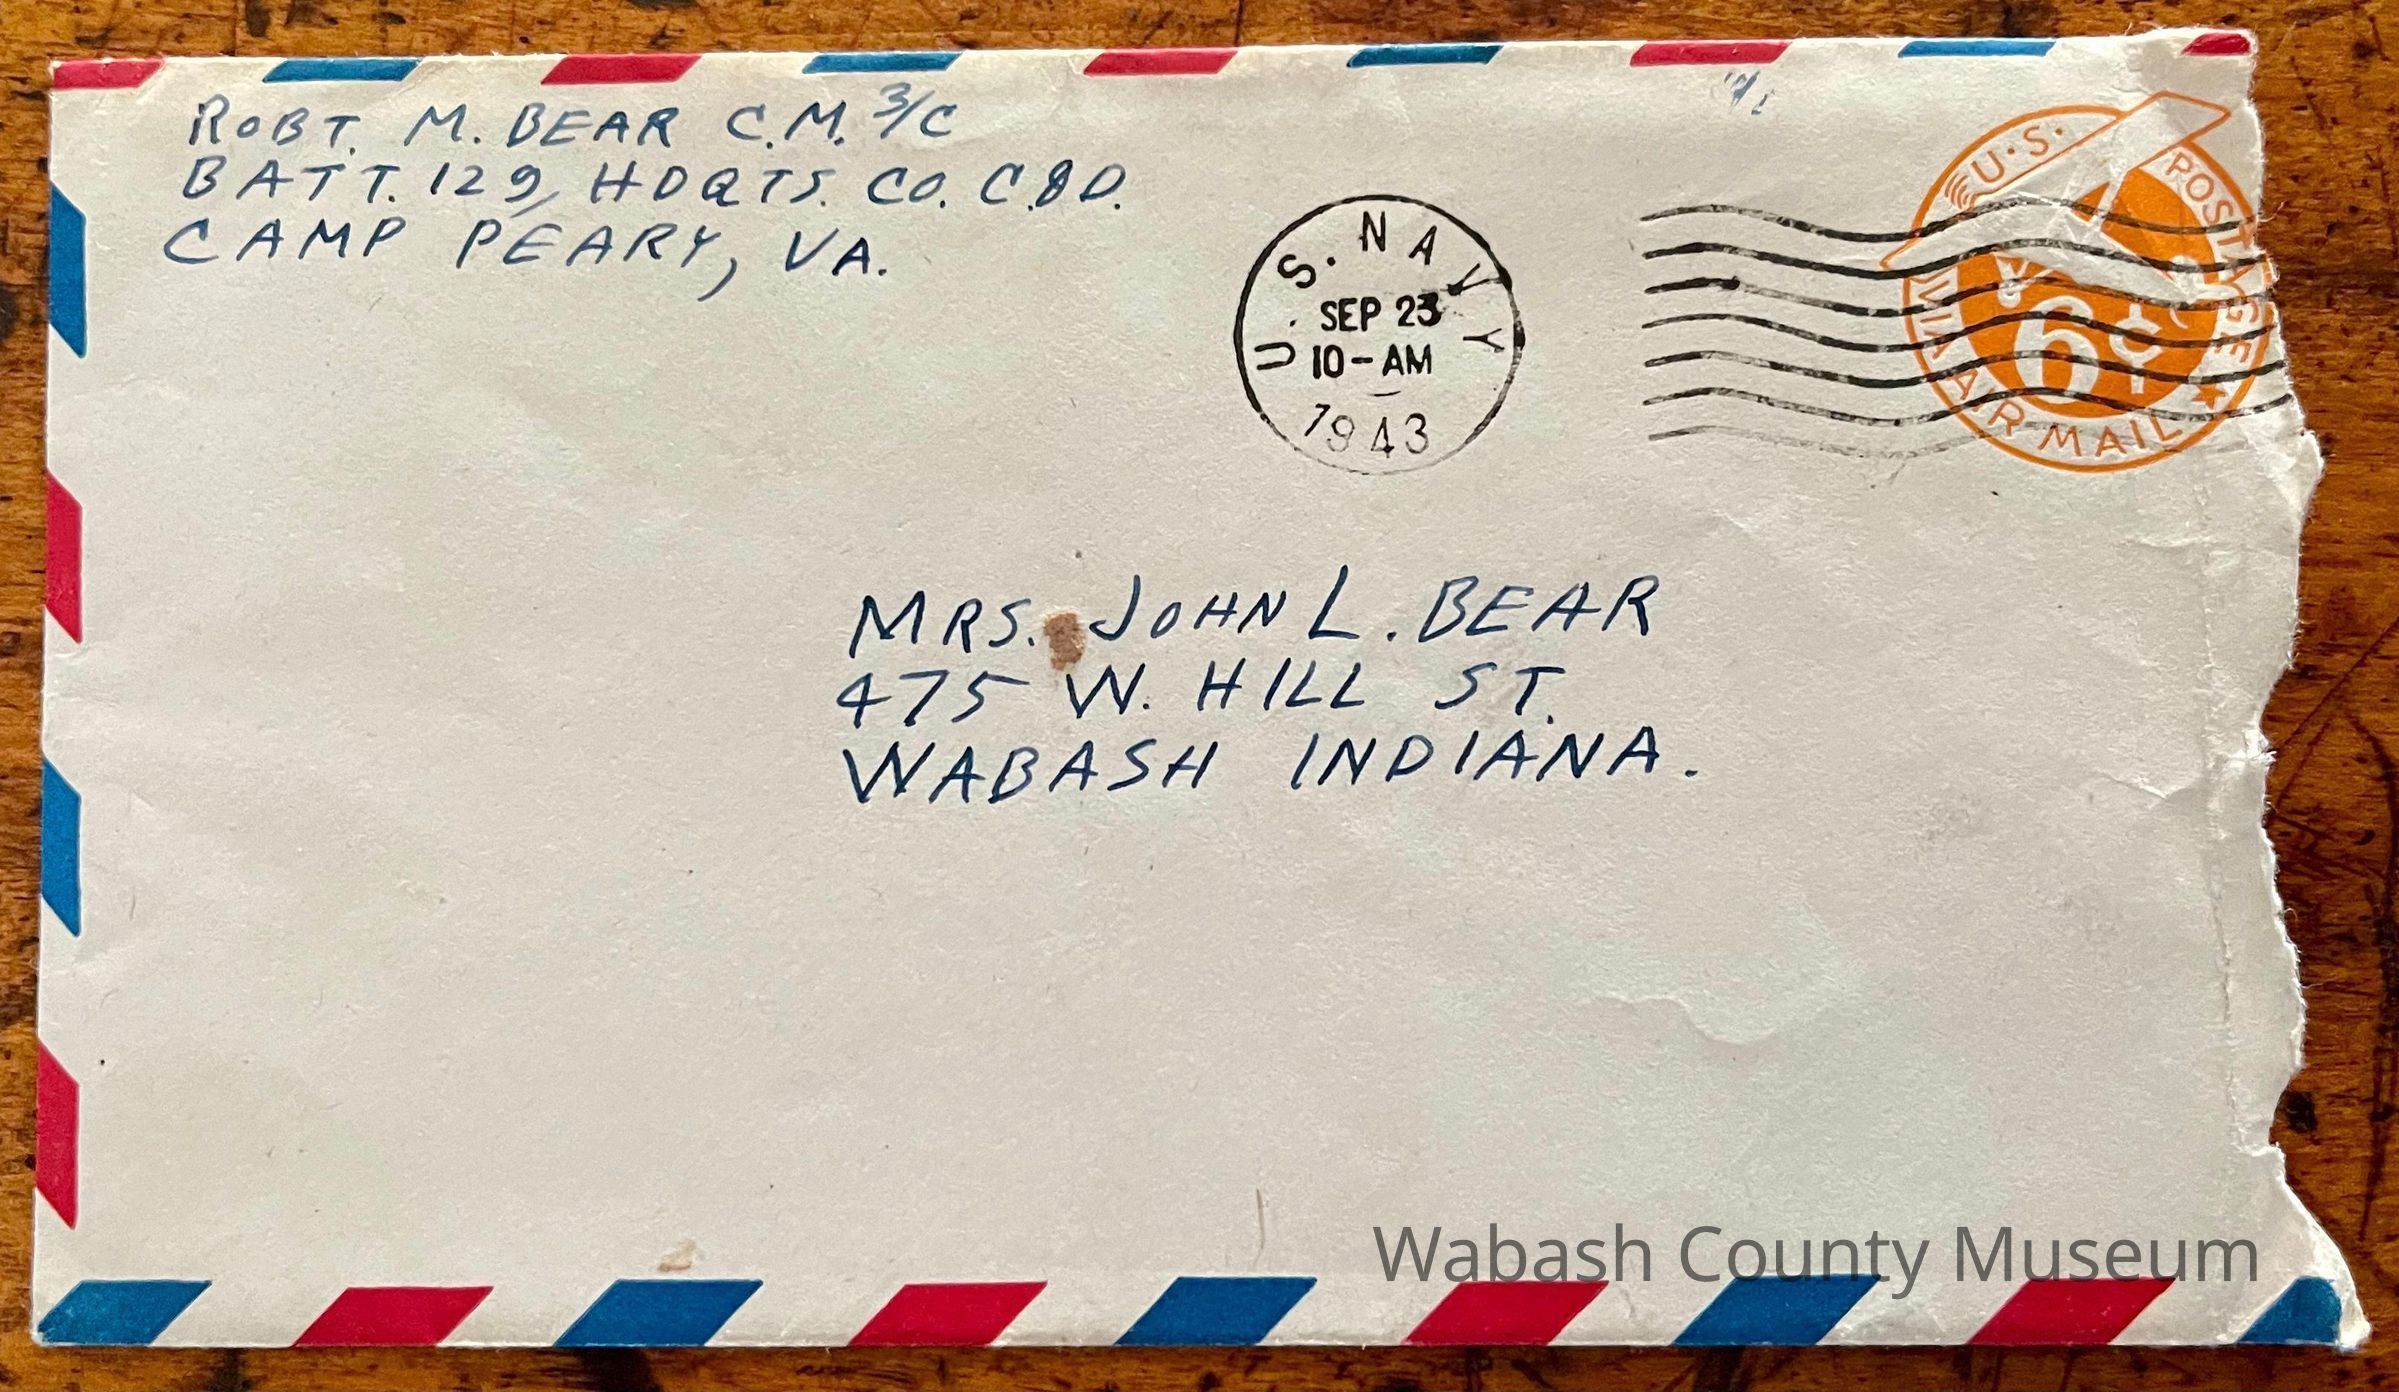 ROBT. M. BEAR C.M. 3/C
BATT. 129, HDQTS. CO. C.8D.
CAMP PEARY, VA.
U.S. NAVY
SEP 23
10-AM
1943
U.S. POSTAGE
6¢
VIA AIR MAIL
MRS. JOHN L. BEAR
475 W. HILL ST.
WABASH INDIANA.
Wabash County Museum